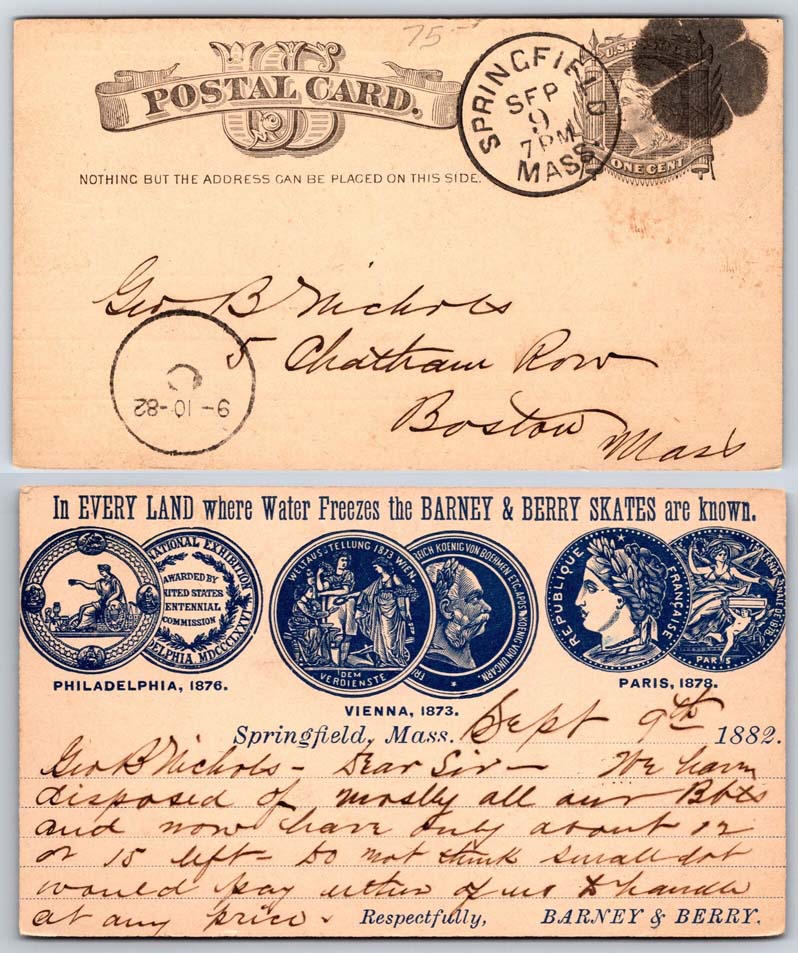 75-
US
POSTAL CARD.
NOTHING BUT THE ADDRESS CAN BE PLACED ON THIS SIDE.
SPRINGFIELD
SEP
9
7 PM
MASS.
U.S. POSTAGE
ONE CENT
Geo B Nichols
5 Chatham Row
Boston Mass
C
9-10-82
In EVERY LAND where Water Freezes the BARNEY & BERRY SKATES are known.
NATIONAL EXHIBITION
AWARDED BY
UNITED STATES
CENTENNIAL
COMMISSION
DELPHIA MDCCCLXXVI
PHILADELPHIA, 1876.
WELTAUSSTELLUNG 1873 WIEN
DEM
VERDIENSTE
KOENIG VON BOEHMEN ETC. APOST. KOENIG VON UNGARN.
VIENNA, 1873.
REPUBLIQUE FRANÇAISE
PARIS
PARIS, 1878.
Springfield, Mass. Sept 9th 1882.
Geo B Nichols - Dear Sir - We have
disposed of mostly all our Bbls
and now have only about 12
or 15 left - Do not think small lot
would pay either of us to handle
at any price. Respectfully, BARNEY & BERRY.